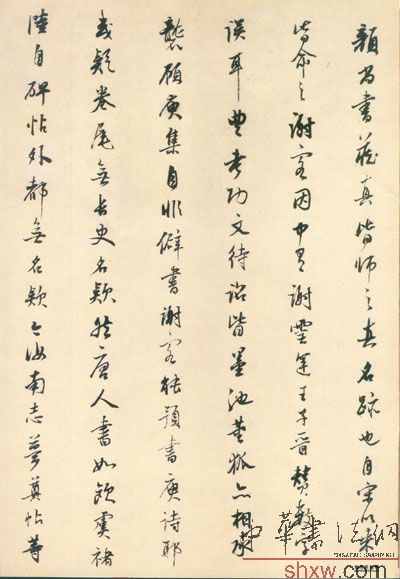 顏尚書藏真皆師之真名跡也自宋以來
皆命之謝客因中有謝靈運王子晉贊數字
誤耳豐考功文待詔皆墨池董狐亦相承
襲顧庾集自非僻書謝客能預書庾詩耶
或疑卷尾無長史名款然唐人書如歐虞褚
陸自碑帖外都無名款今汝南志夢奠帖等
中華書法網
shxw.com